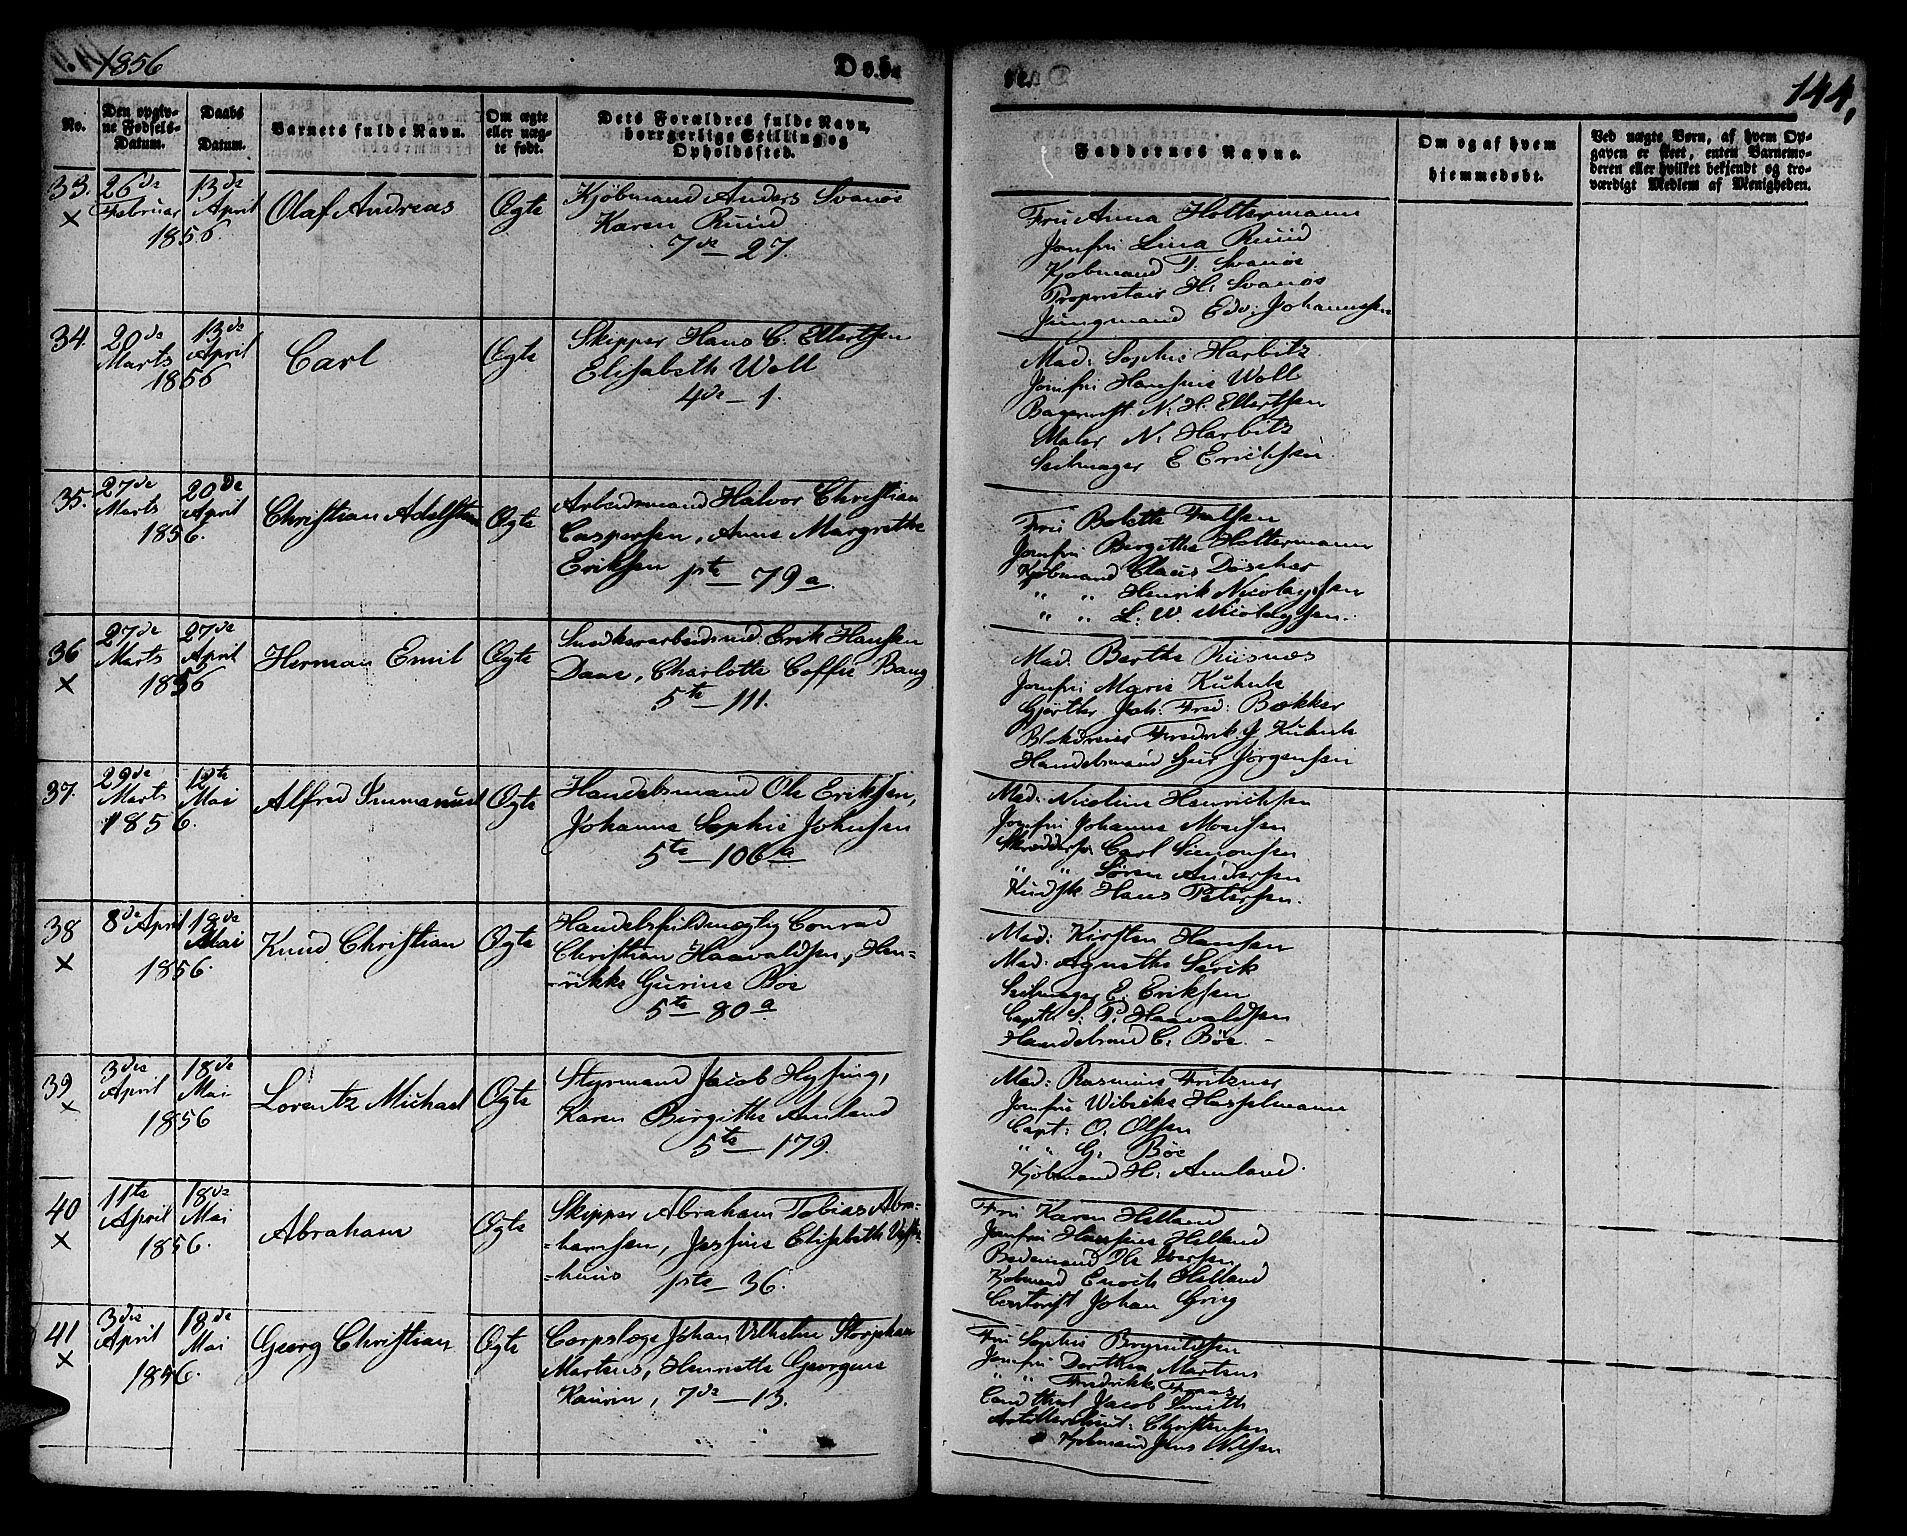 1856
Døb-
te.
144,
No.
Den opgiv-
ne Fødsels-
Datum.
Daabs
Datum.
Barnets fulde Navn.
Om ægte
eller uæg-
te født.
Dets Forældres fulde Navn,
borgerlige Stilling og
Opholdsted.
Faddernes Navne.
Om og af hvem
hjemmedøbt.
Ved uægte Børn, af hvem Op-
gaven er skeet, enten Barnemo-
deren eller hvilket bekjendt og tro-
værdigt Medlem af Menigheden.
33.
×
26de
Februar
1856
13de
April
Olaf Andreas
Ægte
Kjøbmand Anders Svanøe
Karen Ruud
7de — 27.
Fru Anna Holtermann
Jomfru Lina Ruud
Kjøbmand T. Svanøe
Proprietair H. Svanøe
Jungmand Edv. Johannesen
34.
20de
Marts
1856
13de
April
Carl
Ægte
Skipper Hans C. Ellertsen
Elisabeth Woll
4de — 1.
Mad: Sophie Harbitz
Jomfru Hansine Woll
Bagermst. N. H. Ellertsen
Maler N. Harbitz
Seilmager E Erichsen
35.
27de
Marts
1856.
20de
April
Christian Adolf
Ægte
Arbeidsmand Halvor Christian
Caspersen, Anne Margrethe
Eriksen pte — 79a.
Fru Bolette Falsen
Jomfru Bergithe Holtermann
Kjøbmand Claus Döscher
" " Henrik Nicolaysen
" " L. W. Nicolaysen.
36
×
27de
Marts
1856
27de
April
Herman Emil
Ægte
Snedkerarbeidsmd. Erik Hansen
Daae, Charlotte Coffie Bang
5te — 111.
Mad. Berthe Riisnæs
Jomfru Marie Kuhnle
Gjørtler Joh. Fred: Bækker
Blokdreier Fredrik J Kuhnle
Handelsmand Gur Jørgensen
37.
29de
Marts
1856.
1ste
Mai
Alfred Immanuel
Ægte
Handelsmand Ole Eriksen,
Johanne Sophie Johnsen
5te — 106a
Mad: Nicoline Henrichsen
Jomfru Johanne Monsen
Carl Simonsen
" " Søren Andersen
Kudsk Hans Petersen.
38
×
8de April
1856.
18de
Mai
Knud Christian
Ægte
Handelsfuldmægtig Conrad
Christian Haavaldsen, Hen-
-rikke Gurine Bøe
5te — 80a
Mad: Kirsten Hansen
Mad: Agnethe Særik
Seilmager E. Eriksen
Capt: S. P. Haavaldsen
Handelsmd C. Bøe. -
39
×
3die
April
1856
18de
Mai
Lorentz Michael
Ægte
Styrmand Jacob Hysing,
Karen Birgithe Amland
5te — 179.
Mad: Rasmine Fritzner
Jomfru Wibeke Hasselmann
Capt: O. Olsen
" " G. Bøe
Kjøbmand H. Amland.
40
×
11te
April
1856.
18de
Mai
Abraham
Ægte
Skipper Abraham Tobias Abra-
-hamsen, Josine Elisabeth Vest-
-huus pte — 36.
Fru Karen Helland
Jomfru Hansine Helland
Bedemand Ole Iversen
Kjøbmand Enoch Helland
Contorist Johan Grieg
41
×
3die
April
1856.
18de
Mai
Georg Christian
Ægte
Corpslæge Johan Vilhelm Storjohan
Martens, Henriette Georgine
Kaurin, 7de — 13.
Fru Sophie Brynildsen
Jomfru Dorthea Martens
" " Fredrikke
Cand theol Jacob Smith
Artillerilieut: Christensen
Kjøbmand Jens Nilsen